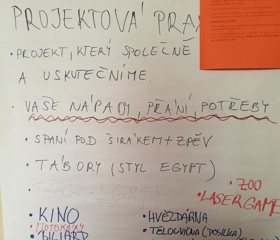 PROJEKTOVÁ
• PROJEKT, KTERÝ SPOLEČNĚ
A USKUTEČNÍME.
• VAŠE NÁPADY, PŘÁNÍ, POTŘEBY
• SPANÍ POD ŠIRÁKEM + ZPĚV
• TÁBORY (STYL EGYPT)
• ZOO
• LASER GAME
• KINO
• HVĚZDÁRNA
MOTOKÁRY
• TĚLOCVIČNA (POSILKA)
BILIARD